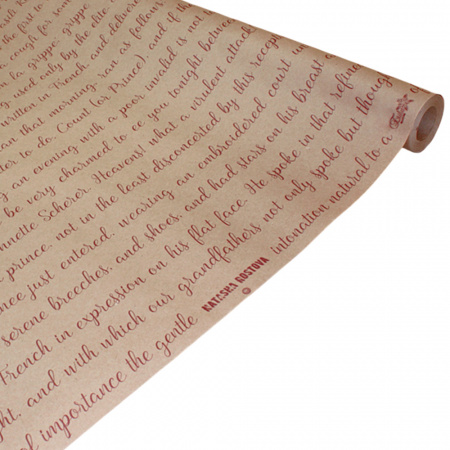 a cough for
la grippe; grippe
used only by the
written in French, and delivere
that morning, ran as follow
to do, Count (or Prince), and if
an evening with a poor invalid
be very charmed to see you tonight between
nnette Scherer. Heavens! what a virulent attack
prince, not in the least disconcerted by his recep
nce just entered, wearing an embroidered court un
serene breeches, and shoes, and had stars on his breast a
French in expression on his flat face. He spoke in that refine
ght, and with which our grandfathers not only spoke but though
of importance the gentle NATASHA ROSTOVA intonation natural to a